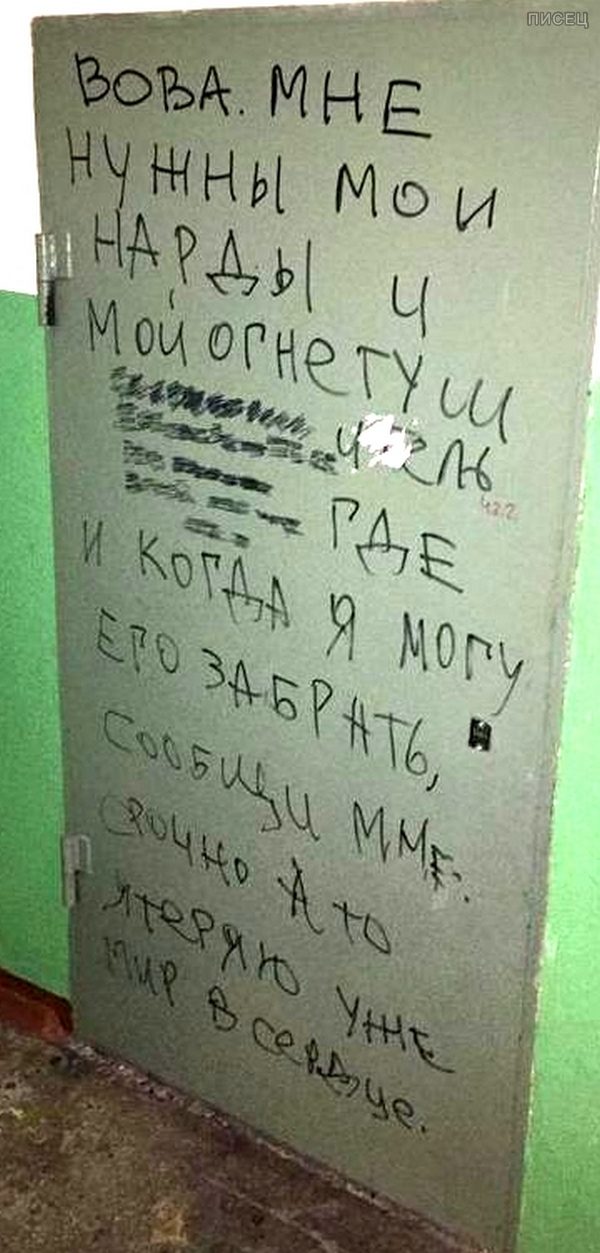 ПИСЕЦ
ВОВА. МНЕ
НУЖНЫ МОИ
НАРДЫ И
МОЙ ОГНЕТУШ
ИТЕЛЬ
422
ГДЕ
И КОГДА Я МОГУ
ЕГО ЗАБРАТЬ,
СООБЩИ МНЕ.
СРОЧНО А ТО
ЯТЕРЯЮ УЖЕ
МИР В СЕРДЦЕ.